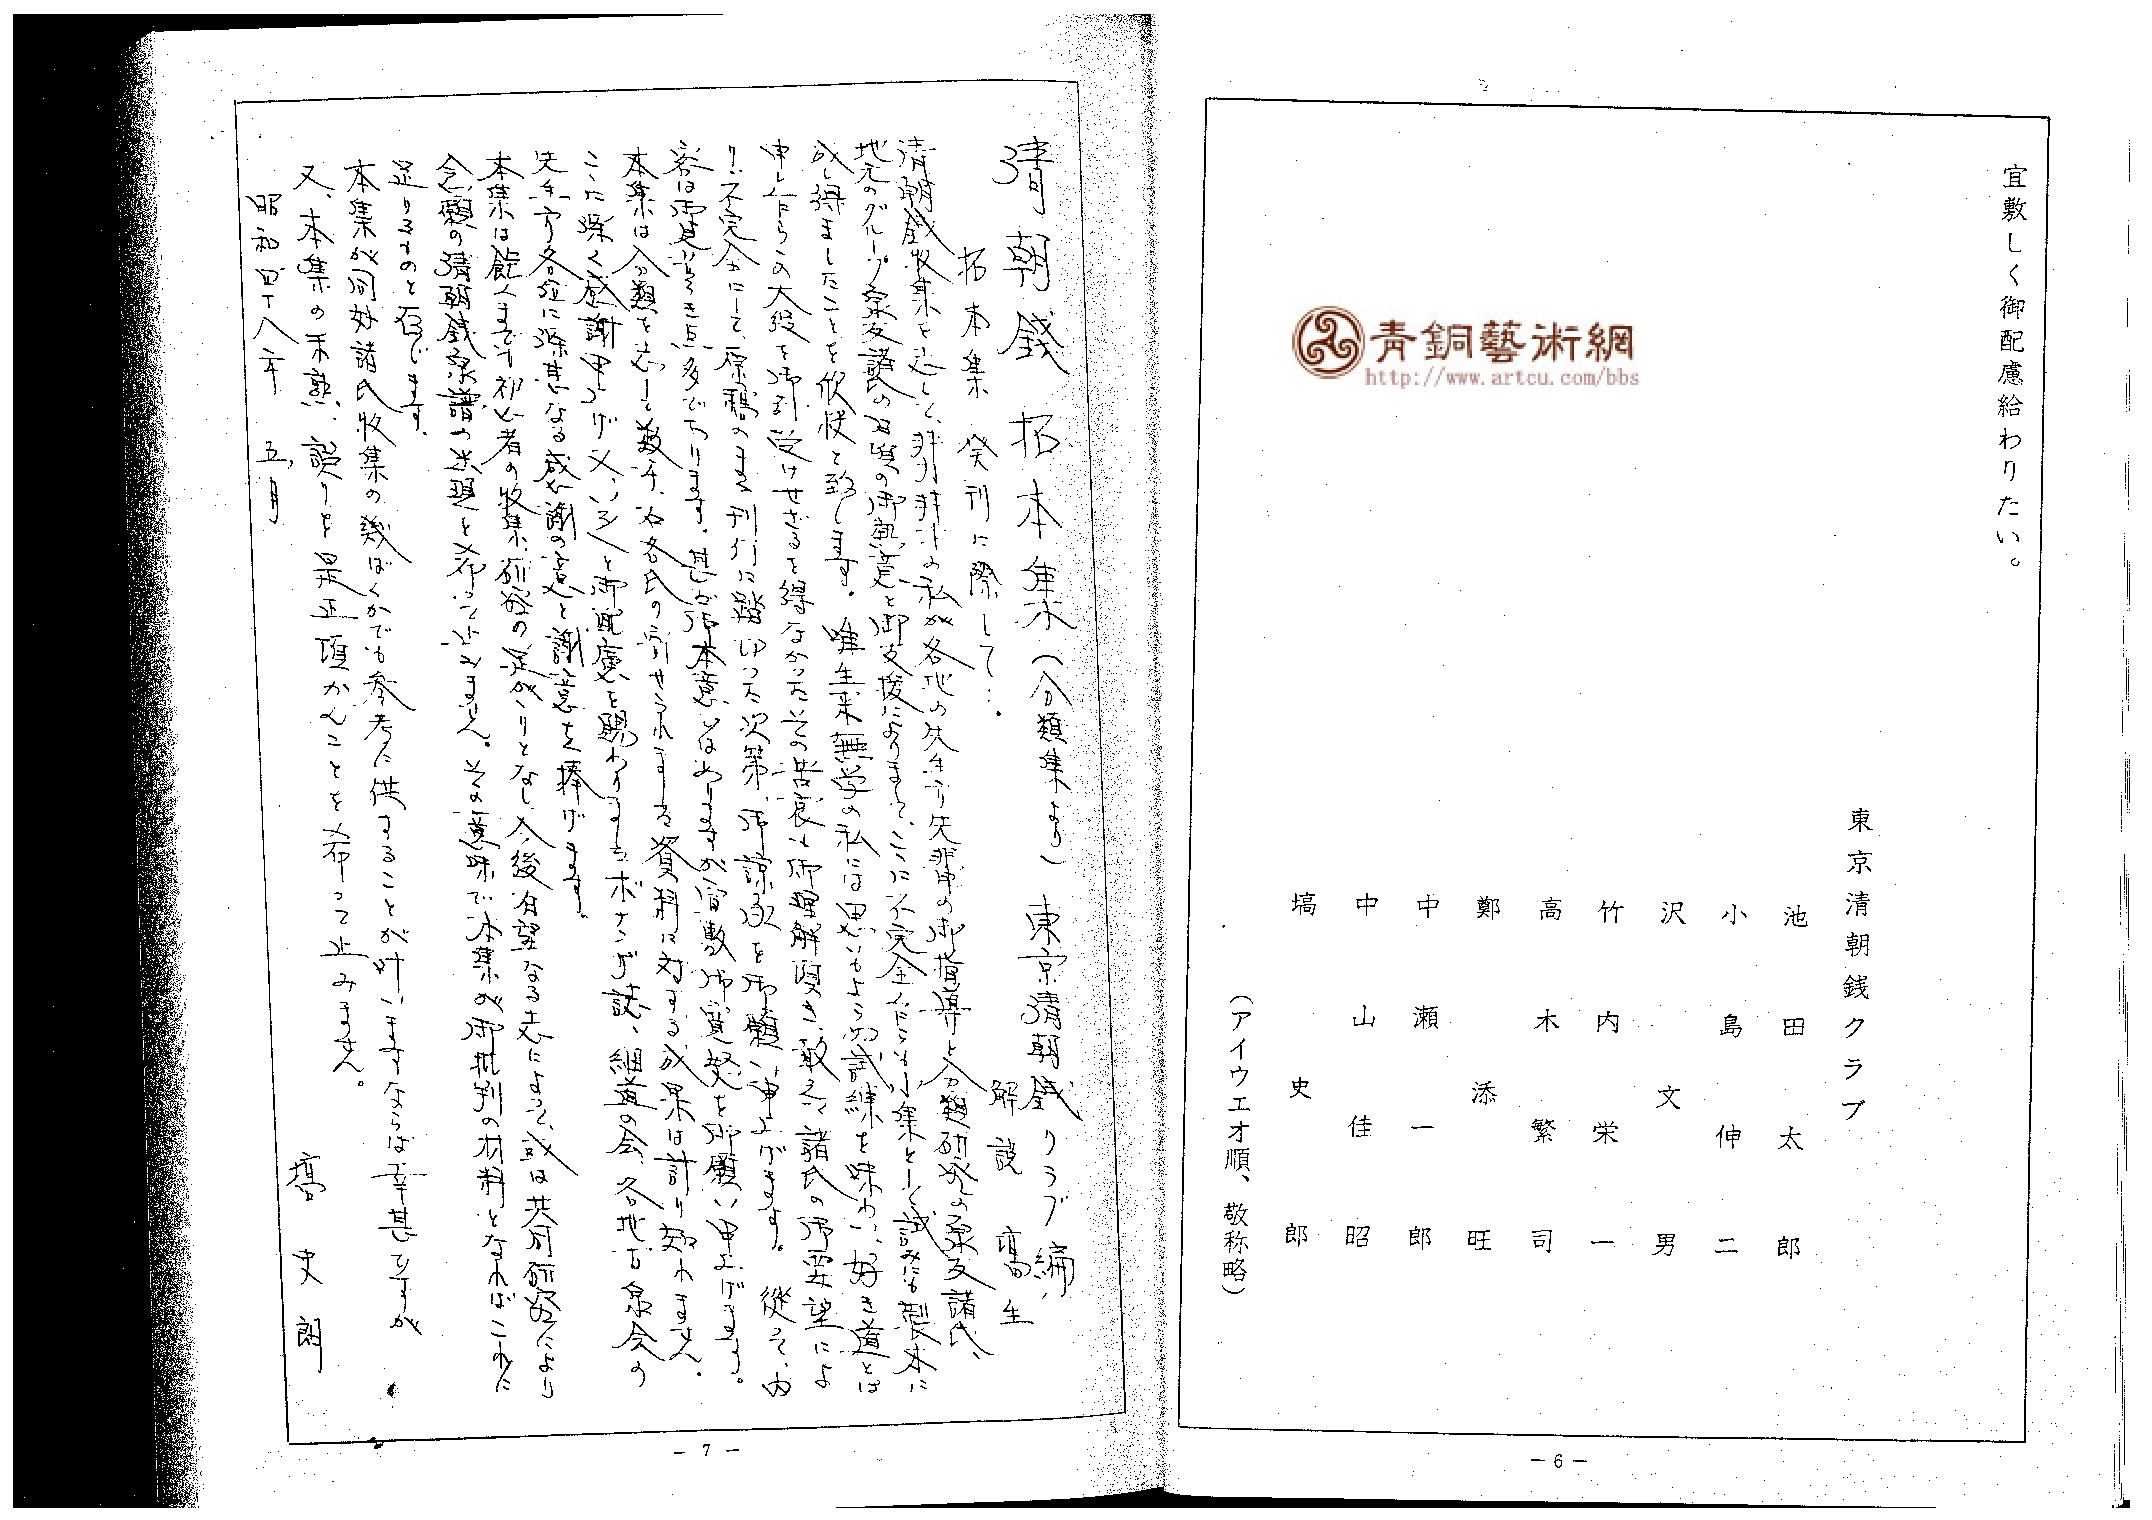 宜敷しく御配慮給わりたい。
東京清朝銭クラブ
池田太郎
小島伸二
沢文男
竹内栄一
高木繁司
鄭添旺
中瀬一郎
中山佳昭
塙史郎
(アイウエオ順、敬称略)
青銅藝術網
http://www.artcu.com/bbs
-6-
清朝銭拓本集(分類集より) 東京清朝銭クラブ編
拓本集発刊に際して…
解説 塙生
清朝銭收集を志して、私が各地の先生方先輩の御指導と分類研究の泉友諸氏、
地元のグループ泉友諸氏の御熱意と御支援によりまして、ここに不完全ながらも小集として試みにも製本に
成し得ましたことを欣快と致します。唯生来無学の私には思いもよらぬ試練を味わい、好き道とは
申しながらこの大役を御引受けせざるを得なかったその苦衷も御理解頂き、敢えて諸氏の御要望によ
り、不完全にして、原稿のまま刊行に踏切った次第、御諒承を御願い申上げます。従って、内
容は電点多々であります。甚だ不本意ではありますが宜敷御寛恕を御願い申上げます。
本集は分類を志して数年、各氏の寄せられまする資料に対する成果は計り知れません。
ここに深く感謝申上げ、又、いろいろと御配慮を賜わりましたボナンザ誌、細道の会、各地古泉会の
先生方各位に深甚なる感謝の意と謝意を捧げます。
本集は飽くまでも初心者の收集、研究の足がかりとなし、今後有望なる志によって、或は共同研究により
念願の清朝銭泉譜の出現を希って止みません。その意味で本集が御批判の材料となればこれに
足りるものと存じます。
本集が同好諸氏收集の幾ばくかでも参考に供することが叶いますならば幸甚ですが
又、本集の未熟、誤りを是正頂かんことを希って止みません。
昭和四十八年 五月
塙史朗
-7-